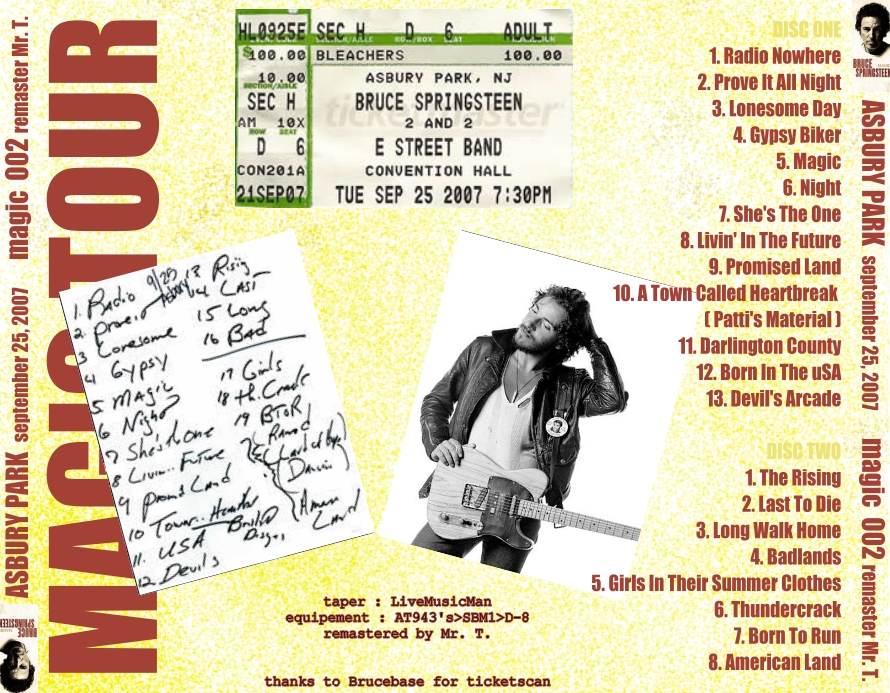 MAGIC TOUR
ASBURY PARK september 25, 2007 magic 002 remaster Mr. T.
BRUCE
SPRINGSTEEN
HL0925E SEC H D 6 ADULT
$100.00 BLEACHERS 100.00
10.00 ASBURY PARK, NJ
SECTION/AISLE
SEC H BRUCE SPRINGSTEEN
AM 10X 2 AND 2
ROW SEAT
D 6 E STREET BAND
CON201A CONVENTION HALL
21SEP07 TUE SEP 25 2007 7:30PM
ticketmaster
9/25
Asbury
1. Radio
2. Prove it
3 Lonesome
4 Gypsy
5 Magic
6 Night
7 She's the One
8 Livin.. Future
9 Prom Land
10 Town.. Heart
11. USA
12 Devils
13 Rising
14 LAST
15 Long
16 Bad
17 Girls
18 th. Crack
19 BTOR
Ramod
Land of hope
Dancin
Amer
Land
DISC ONE
1. Radio Nowhere
2. Prove It All Night
3. Lonesome Day
4. Gypsy Biker
5. Magic
6. Night
7. She's The One
8. Livin' In The Future
9. Promised Land
10. A Town Called Heartbreak
( Patti's Material )
11. Darlington County
12. Born In The uSA
13. Devil's Arcade
DISC TWO
1. The Rising
2. Last To Die
3. Long Walk Home
4. Badlands
5. Girls In Their Summer Clothes
6. Thundercrack
7. Born To Run
8. American Land
taper : LiveMusicMan
equipement : AT943's>SBM1>D-8
remastered by Mr. T.
thanks to Brucebase for ticketscan
BRUCE
SPRINGSTEEN
ASBURY PARK september 25, 2007 magic 002 remaster Mr. T.